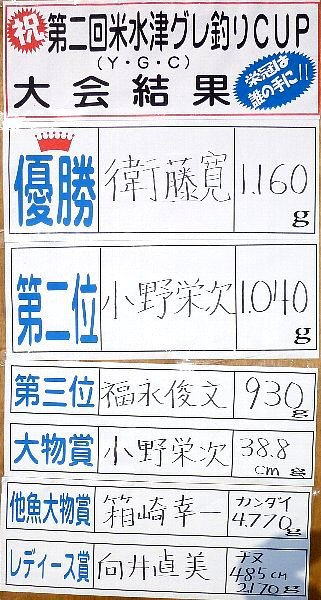 祝 第二回米水津グレ釣りCUP
(Y・G・C)
大会結果
栄冠は
誰の手に!!
優勝 衛藤寛 1.160g
第二位 小野栄次 1.040g
第三位 福永俊文 930g
大物賞 小野栄次 38.8cm g
他魚大物賞 箱崎幸一 カンダイ
4.770g
レディース賞 向井直美 チヌ
48.5cm
2.170g